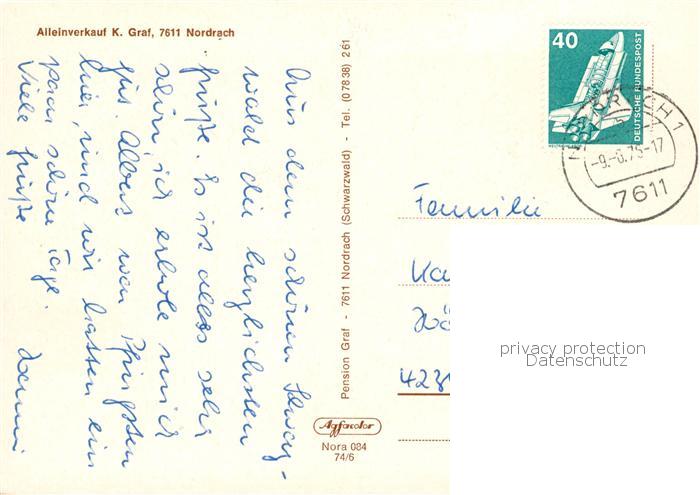 Alleinverkauf K. Graf, 7611 Nordrach
Aus dem schönen Schwarz-
wald die herzlichsten
Grüße. Es ist alles sehr
schön, ich erhole mich
gut. Albert war Pfingsten
hier, und wir hatten ein
paar schöne Tage.
Viele Grüße
Pension Graf - 7611 Nordrach (Schwarzwald) - Tel. (0 78 38) 2 61
Agfacolor
Nora 084
74/6
40
DEUTSCHE BUNDESPOST
CH 1
-9.-6.75-17
7611
Familie
Ka
423
privacy protection
Datenschutz